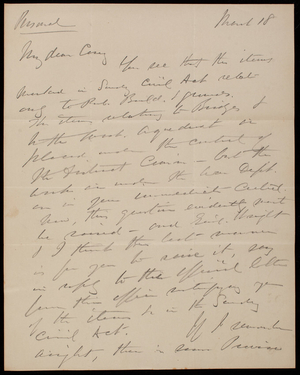 Personal
March 18
My dear Casey
You see that the items
marked in Sundry Civil Act relat-
ing to Pub. Build. & grounds.
The items relating to Bridges &
to the Wash. Aqueduct are
placed under the control of
the District Comrs - but the
work is under the War Dept.
or in your immediate control.
Now, this question evidently must
be raised - and Engr.
& I think the best manner
is for you to raise it say
in reply to the official letter
from this office notifying you
of the items in the Sundry
Civil Act. If I remember
aright, there is some Previous